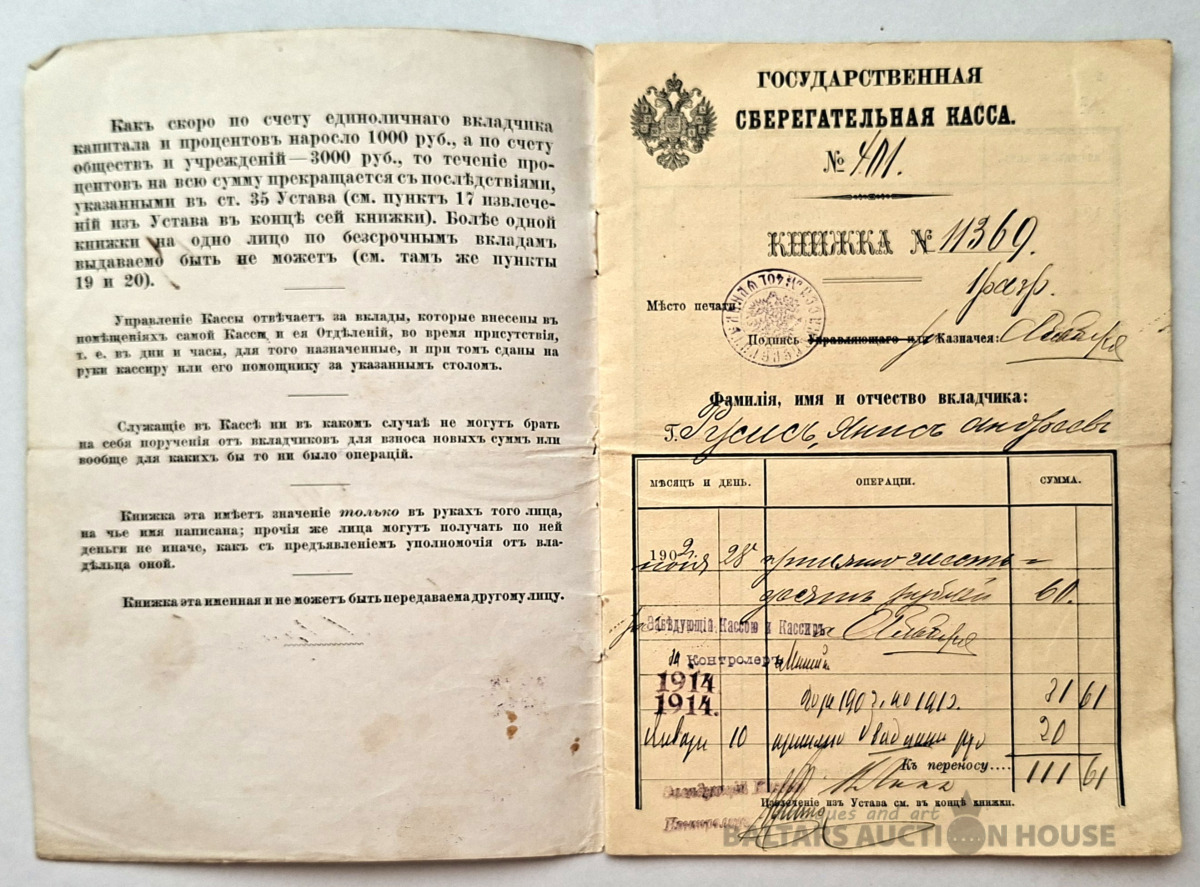 Какъ скоро по счету единоличнаго вкладчика
капитала и процентовъ наросло 1000 руб., а по счету
обществъ и учрежденій—3000 руб., то теченіе про-
центовъ на всю сумму прекращается съ послѣдствіями,
указанными въ ст. 35 Устава (см. пунктъ 17 извлече-
ній изъ Устава въ концѣ сей книжки). Болѣе одной
книжки на одно лицо по безсрочнымъ вкладамъ
выдаваемо быть не можетъ (см. тамъ же пункты
19 и 20).
Управленіе Кассы отвѣчаетъ за вклады, которые внесены въ
помѣщеніяхъ самой Кассы и ея Отдѣленій, во время присутствія,
т. е. въ дни и часы, для того назначенные, и при томъ сданы на
руки кассиру или его помощнику за указаннымъ столомъ.
Служащіе въ Кассѣ ни въ какомъ случаѣ не могутъ брать
на себя порученія отъ вкладчиковъ для взноса новыхъ суммъ или
вообще для какихъ бы то ни было операцій.
Книжка эта имѣетъ значеніе только въ рукахъ того лица,
на чье имя написана; прочія же лица могутъ получать по ней
деньги не иначе, какъ съ предъявленіемъ уполномочія отъ вла-
дѣльца оной.
Книжка эта именная и не можетъ быть передаваема другому лицу.
ГОСУДАРСТВЕННАЯ
СБЕРЕГАТЕЛЬНАЯ КАССА.
№ 401.
КНИЖКА № 11369.
1 разр.
Мѣсто печати:
Подпись Управляющаго или Казначея:
Фамилія, имя и отчество вкладчика:
Г. Русисъ, Янисъ Андреевъ
МѢСЯЦЪ И ДЕНЬ. ОПЕРАЦІИ. СУММА.
1902
28 принято шесть-
десятъ рублей 60.
Завѣдующій Кассою и Кассиръ
за Контролеръ
1914
1914.
за 1903 по 1913. 31 61
Январь 10 принято двадцать руб 20
Къ переносу.... 111 61
Извлеченіе изъ Устава см. въ концѣ книжки.
ques and art
BALTARS AUCTION HOUSE